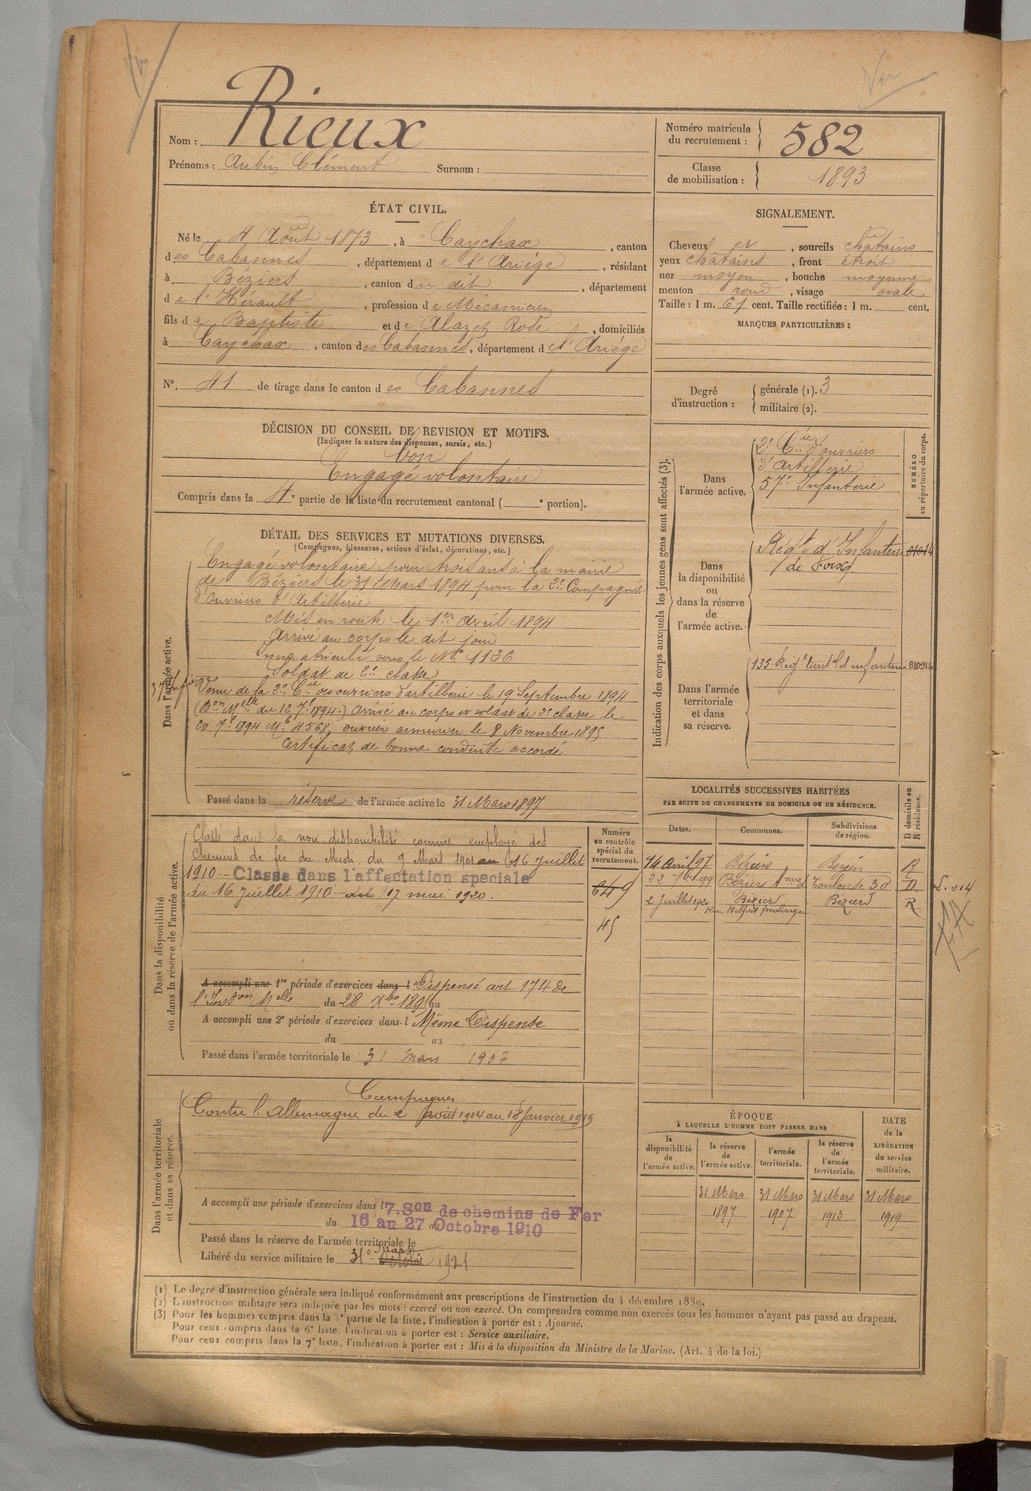 Rieux
Nom :
Prénoms : Aubin Clément Surnom :
Numéro matricule du recrutement : 582
Classe de mobilisation : 1893
ÉTAT CIVIL.
Né le 4 Août 1873, à Caychax, canton
des Cabannes, département de l'Ariège, résidant
à Béziers, canton du dit, département
de l'Hérault, profession de Mécanicien
fils de Baptiste et de Alazet Rose, domiciliés
à Caychax, canton des Cabannes, département de l'Ariège
N° 41 de tirage dans le canton des Cabannes
SIGNALEMENT.
Cheveux et, sourcils châtains
yeux châtains, front étroit
nez moyen, bouche moyenne
menton rond, visage ovale
Taille : 1 m. 61 cent. Taille rectifiée : 1 m. cent.
MARQUES PARTICULIÈRES :
Degré d'instruction : générale (1). 3
militaire (2).
DÉCISION DU CONSEIL DE REVISION ET MOTIFS.
(Indiquer la nature des dispenses, sursis, etc.)
bon
Engagé volontaire
Compris dans la 4e partie de la liste du recrutement cantonal ( e portion).
DÉTAIL DES SERVICES ET MUTATIONS DIVERSES.
(Campagnes, blessures, actions d'éclat, décorations, etc.)
Dans l'armée active.
Engagé volontaire pour trois ans à la mairie
de Béziers le 31 Mars 1894 pour la 2e Compagnie
d'Ouvriers d'Artillerie
Mis en route le 1er Avril 1894
Arrivé au corps le dit jour
immatriculé sous le No 1136
Soldat de 2e classe
Venu de la 2e Cie des ouvriers d'artillerie le 19 Septembre 1894
(Don Mlle du 12 7bre 1894) Arrivé au corps et soldat de 2e classe le
20 7bre 1894 No 4568, ouvrier armurier le 8 Novembre 1895
Certificat de bonne conduite accordé
Passé dans la réserve de l'armée active le 31 Mars 1897
Indication des corps auxquels les jeunes gens sont affectés (3).
NUMÉRO au répertoire du corps.
Dans l'armée active.
2e Cie d'ouvriers
d'Artillerie
57e Infanterie
Dans la disponibilité ou dans la réserve de l'armée active.
Régt d'Infanterie
de Foix
Dans l'armée territoriale et dans sa réserve.
135 Régt territl d'infanterie
LOCALITÉS SUCCESSIVES HABITÉES
PAR SUITE DE CHANGEMENTS DE DOMICILE OU DE RÉSIDENCE.
Dates. Communes. Subdivisions de région. D domicile ou R résidence.
14 Avril 97 Béziers Béziers R
Béziers Toulouse D
2 Juillet Béziers Béziers R
Rue Belfort
Dans la disponibilité ou dans la réserve de l'armée active.
Numéro au contrôle spécial du recrutement.
649
45
Classé dans la non-disponibilité comme employé des
Chemins de fer du Midi du 9 Mars 1901 au 16 Juillet
1910 - Classé dans l'affectation spéciale
du 16 Juillet 1910 au 17 mai 1920.
A accompli une 1re période d'exercices dans l Dispensé art 174 de
l'Inston Mlle du 28 Xbre
A accompli une 2e période d'exercices dans l Même Dispense
du au
Passé dans l'armée territoriale le 31 mars 1907
Dans l'armée territoriale et dans sa réserve.
Campagnes
Contre l'Allemagne du 2 Août 1914 au 18 Janvier 1919
A accompli une période d'exercices dans l 7. Son de chemins de Fer
du 16 au 27 Octobre 1910
Passé dans la réserve de l'armée territoriale le
Libéré du service militaire le 31 Mars 1921
ÉPOQUE
À LAQUELLE L'HOMME DOIT PASSER DANS
la disponibilité de l'armée active. la réserve de l'armée active. l'armée territoriale. la réserve de l'armée territoriale.
DATE de la LIBÉRATION du service militaire.
31 Mars 31 Mars 31 Mars 31 Mars
1897 1907 1913 1919
(1) Le degré d'instruction générale sera indiqué conformément aux prescriptions de l'instruction du 4 décembre 1889.
(2) L'instruction militaire sera indiquée par les mots : exercé ou non exercé. On comprendra comme non exercés tous les hommes n'ayant pas passé au drapeau.
(3) Pour les hommes compris dans la 5e partie de la liste, l'indication à porter est : Ajourné.
Pour ceux compris dans la 6e liste, l'indication à porter est : Service auxiliaire.
Pour ceux compris dans la 7e liste, l'indication à porter est : Mis à la disposition du Ministre de la Marine. (Art. 4 de la loi.)